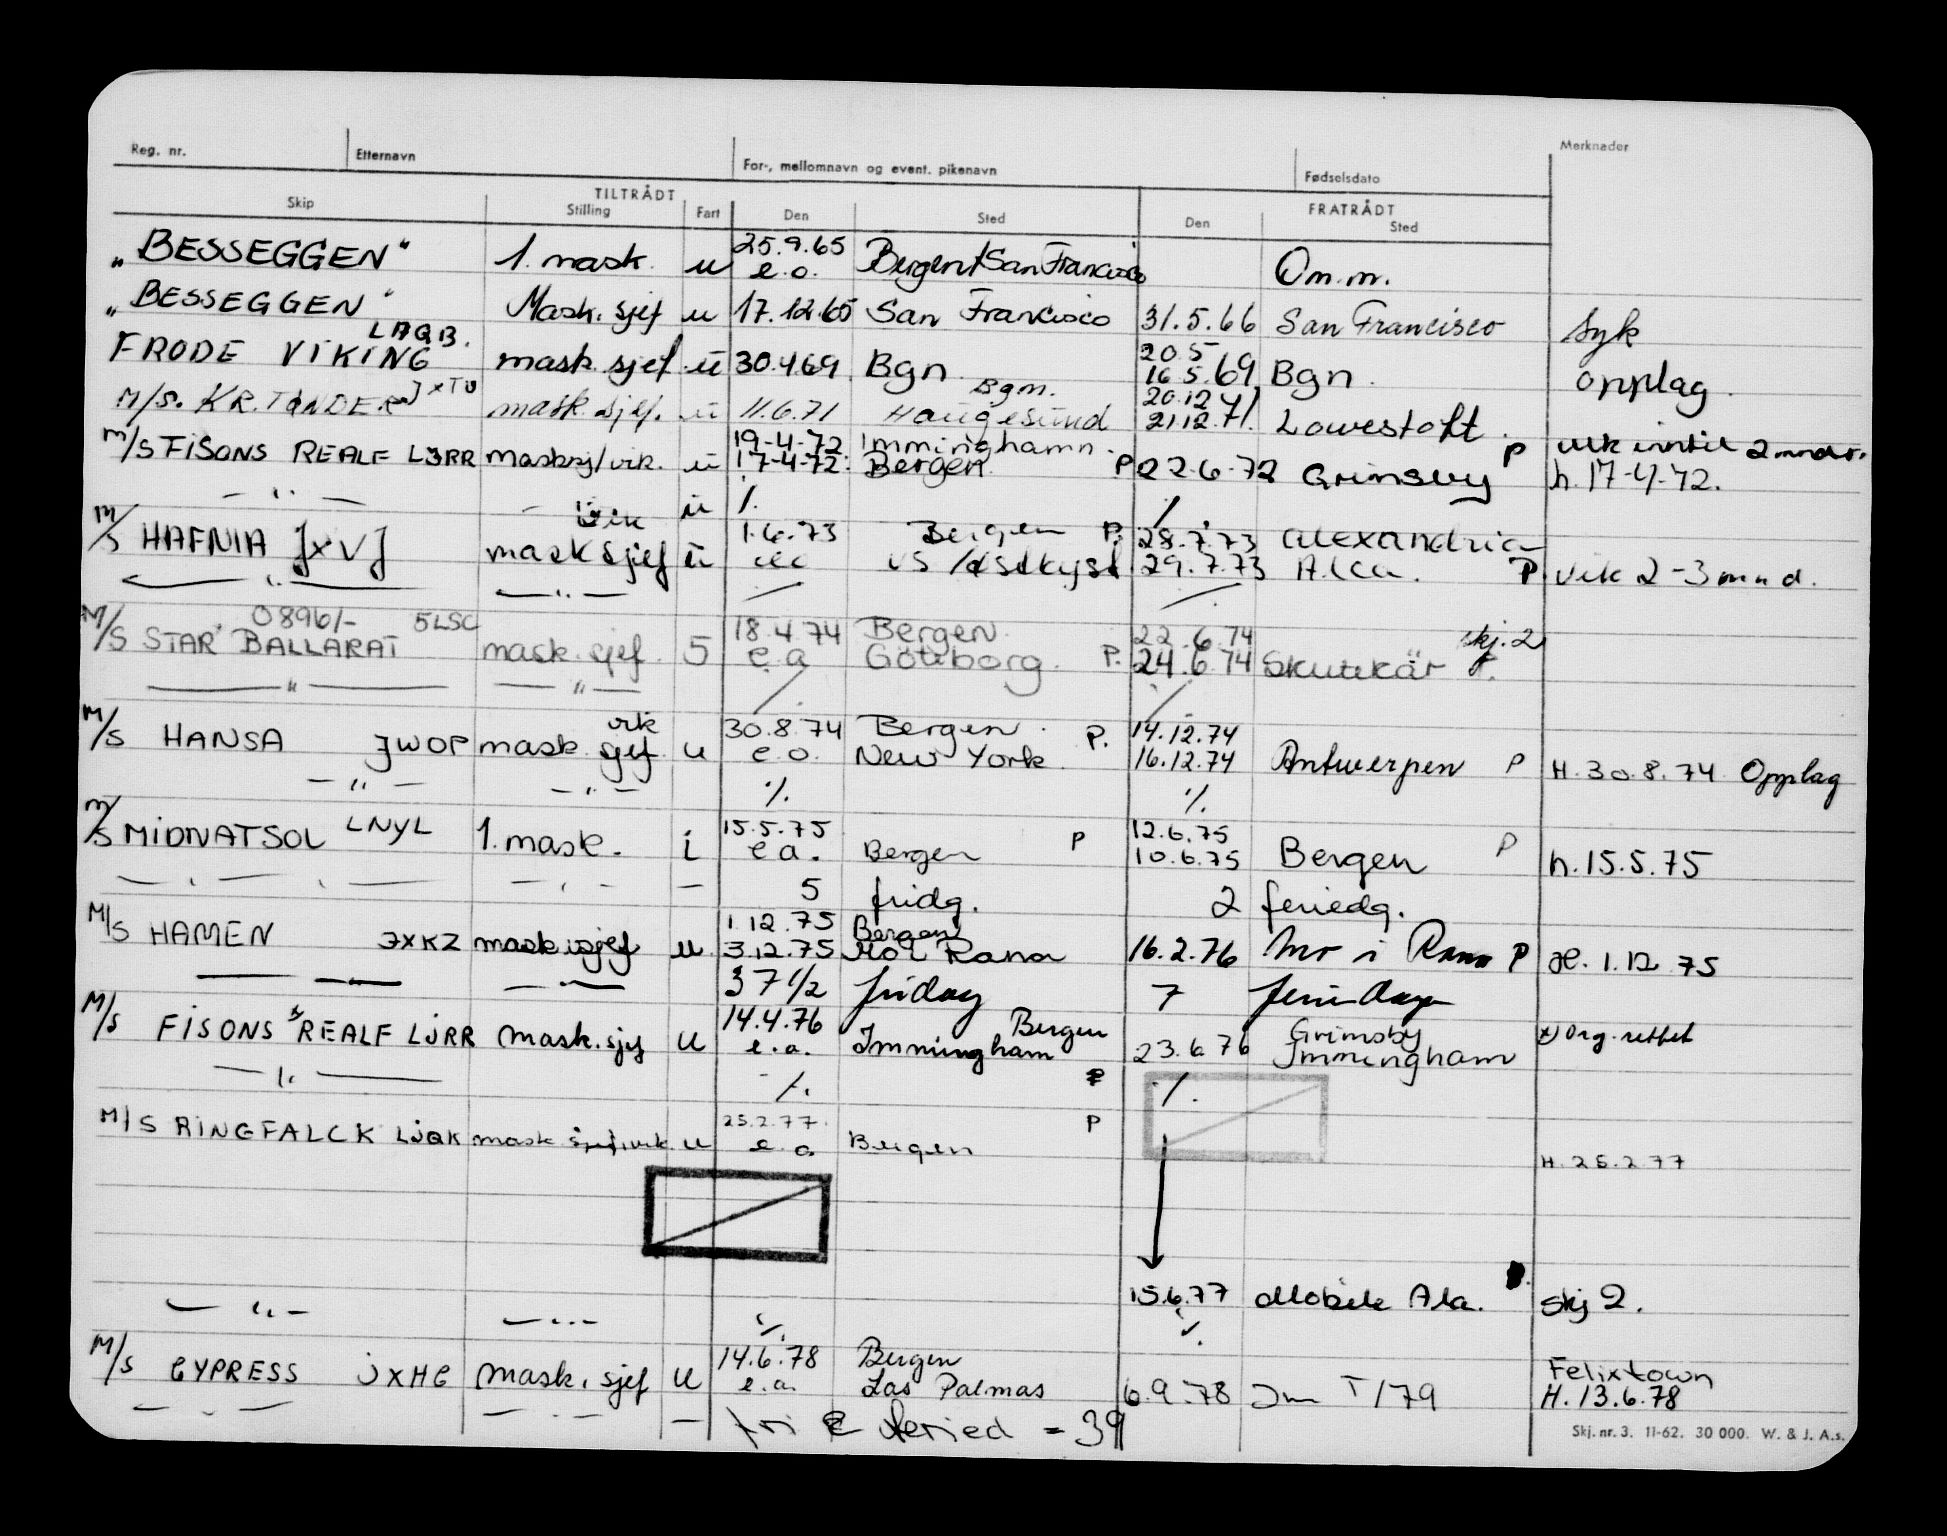 Reg. nr. Etternavn For-, mellomnavn og event. pikenavn Fødselsdato Merknader
TILTRÅDT FRATRÅDT
Skip Stilling Fart Den Sted Den Sted
25.9.65
„BESSEGGEN" 1. mask. u e.o. Bergen/San Francisco Om.m.
„BESSEGGEN" Mask. sjef u 17.12.65 San Francisco 31.5.66 San Francisco Syk
LAQB. 20.5
FRODE VIKING mask. sjef u 30.4.69 Bgn. 16.5.69 Bgn. opplag
JXTU Bgn. 20.12.71
M/S. KR. TØNDER mask. sjef. u 11.6.71 Haugesund 21.12.71. Lowestoft.
19-4-72. Imminghamn. P vik inntil 2 mndr.
M/S FISONS REALF LJRR masksj/vik. u 17-4-72. Bergen. P 22.6-72 Grimsby h. 17-4-72.
— " — u ٪
vik 1.6.73 Bergen P. 28.7.73 Alexandria
M/S HAFNIA JXVJ mask sjef u US/Østkyst 29.7.73 P. vik 2-3 mnd.
— " — — " —
0896/- 5LSC 18.4.74 Bergen. 22.6.74 skj. 2
M/S STAR BALLARAT mask. sjef. 5 e.a Göteborg. P. 24.6.74 Skutskär P.
— " — — " —
vik 30.8.74 Bergen. 14.12.74
M/S HANSA JWOP mask. sjef u e.o. New York P. 16.12.74 Antwerpen P H. 30.8.74 Opplag
— " — — " — ٪ ٪
LNYL 15.5.75 12.6.75
M/S MIDNATSOL 1. mask. i e.a. Bergen P 10.6.75 Bergen P h. 15.5.75
5 fridg. 2 feriedg.
1.12.75 Bergen
M/S HAMEN JXKZ mask sjef u. 3.12.75 Mo i Rana 16.2.76 Mo i Rana P H. 1.12.75
37 1/2 fridag 7 feriedager
14.4.76 Bergen Grimsby
M/S FISONS REALF LJRR Mask. sjef u e.a. Immingham 23.6.76 Immingham x) Org. rettet
— " — ٪ P ٪
25.2.77. P
M/S RINGFALCK LJQK mask. sjef/vik. u e.o Bergen H. 25.2.77
15.6.77 Mobile Ala. skj 2.
— " — — " — ٪ ٪
14.6.78 Bergen Felixtown
M/S CYPRESS JXHC Mask. sjef u e.a. Las Palmas 6.9.78 Jm T/79 H. 13.6.78
fri & feried = 39
Skj. nr. 3. 11-62. 30 000. W. & J. A.s.